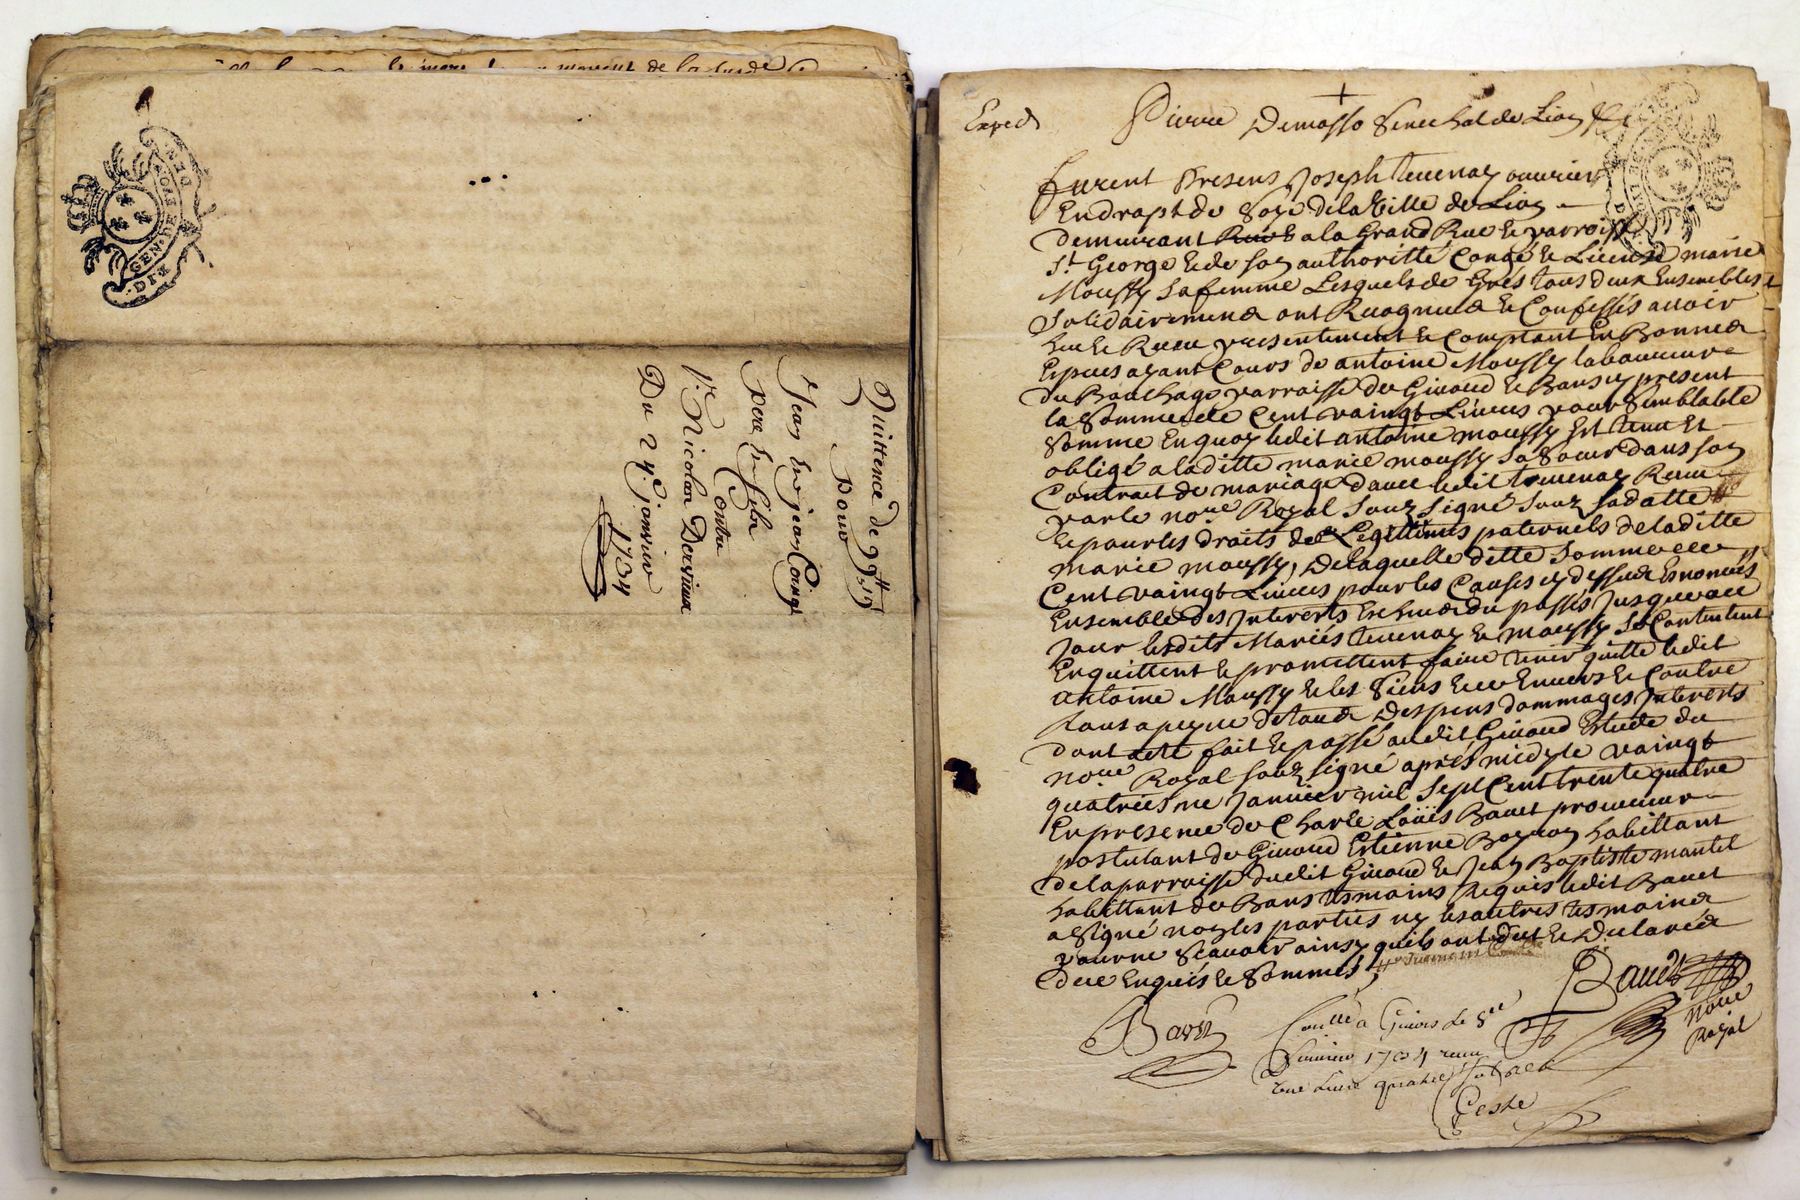 GEN. DE
DIX DEN
Quittence de 99 lt 19
pour
Jean
pere
Contre
Sr. Nicolas
Du 24e. janvier
1734
Exped
Pierre Demasso Senechal de Lion &
GEN. DE
furent Presens Joseph tevenay ouvrier
En drapt de Soye dela Ville de Lion
demeurant a la Grand Rue Et parroisse
St. George Et de son authoritté Congé Et License marie
Moussy sa femme Lesquels de Grés tous deux Ensembles
Solidairement ont Recognus Et Confessés avoir
heu Et Receu presentement Et Comptant En Bonnes
Especes ayant Cours de antoine Moussy laboureur
du parroisse de Givord Et Bans present
la Somme de Cent vaingt Livres pour Semblable
Somme En quoy ledit antoine moussy Est tenu Et
obligé a laditte marie moussy sa soeur dans son
Contrait de mariage d'avec ledit tevenay Receu
par le nore. Royal Souz Signé Souz sa datte
Et pour les droits de Legittimes paternels de laditte
marie moussy, De laquelle ditte Somme de
Cent vaingt Livres pour les Causes cy dessus Enoncés
Ensemble des Interests du passés Jusques a ce
Jour lesdits Mariés tevenay Et moussy Se Contentent
En quittent Et promettent faire tenir quitte ledit
antoine Moussy Et les Siens Envers Et Contre
tous a peyne de tous Despens dommages Interests
dont acte fait Et passé audit Givord Estude du
nore. Royal souz signé aprés midy le vaingt
quatriesme Janvier mil Sept Cent trente quatre
En presence de Charle Loüis Bavet procureur
postulant de Givord Estienne habittant
de la parroisse dudit Givord Et Jean Baptiste mantel
habittant de Bans tesmoins Requis ledit Bavet
a Signé non les parties ny les autres tesmoins
pour ne Scavoir ainsy quils ont dit Et Declarés
de ce Enquis Et Sommés
Bavet
nore
Royal
Conllé a Givors Le
Janvier 1734 receu
une Livre quatre sols